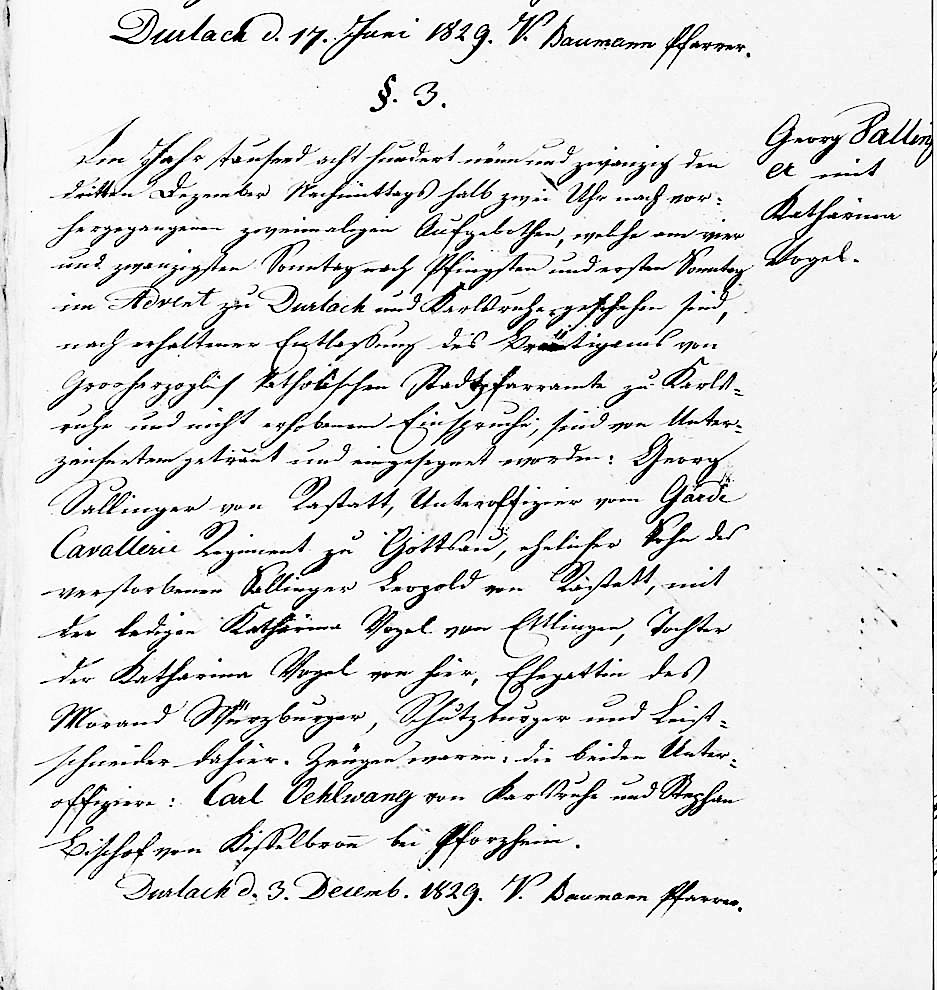 Durlach d. 17. Juni 1829. V. Baumann Pfarrer.
§. 3.
Georg Salling
er mit
Katharina
Vogel.
Im Jahr tausend acht hundert neun und zwanzig den
dritten Dezember Nachmittags halb zwei Uhr nach vor-
hergegangenen zweimaligen Aufgebothen, welche am vier
und zwanzigsten Sonntag nach Pfingsten und ersten Sonntag
im Advent zu Durlach und Karlsruhe geschehen sind,
nach erhaltener Entlassung des Bräutigams von
Grosherzoglich katholischen Stadtpfarramte zu Karls-
ruhe und nicht erhobenem Einspruche, sind von Unter-
zeichnetem getraut und eingesegnet worden: Georg
Sallinger von Rastatt, Unteroffizier vom Garde
Cavallerie Regiment zu Gottsau, ehelicher Sohn des
verstorbenen Sallinger Leopold von Rastatt, mit
der ledigen Katharina Vogel von Ettlingen, Tochter
der Katharina Vogel von hier, Ehegattin des
Morand Würzburger, Schutzbürger und
schneider dahier. Zeugen waren: die beiden Unter-
offiziere: Carl Oehlwang von Karlsruhe und Stephan
Bischof von Kisselbronn bei Pforzheim.
Durlach d. 3. Decemb. 1829. V. Baumann Pfarrer.